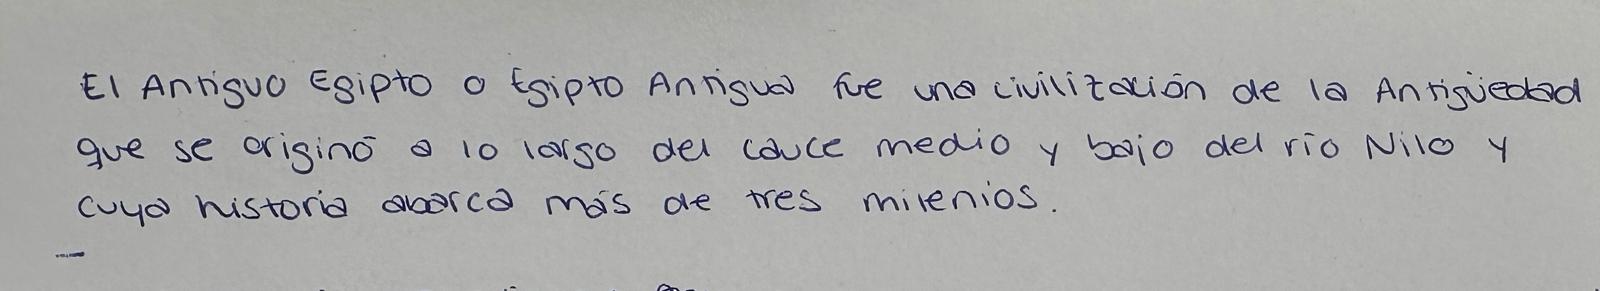 El Antiguo Egipto o Egipto Antiguo fue una civilización de la Antigüedad
que se originó a lo largo del cauce medio y bajo del río Nilo y
cuya historia abarca más de tres milenios.